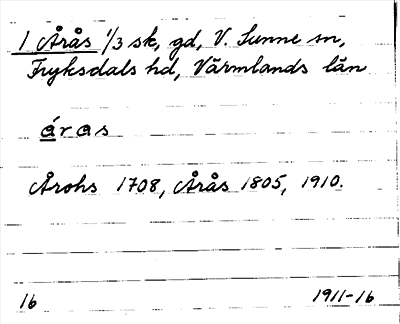 1 Årås 1/3 sk, gd, V. Sunne sn,
Fryksdals hd, Värmlands län
áras
Årohs 1708, Årås 1805, 1910.
16 1911-16